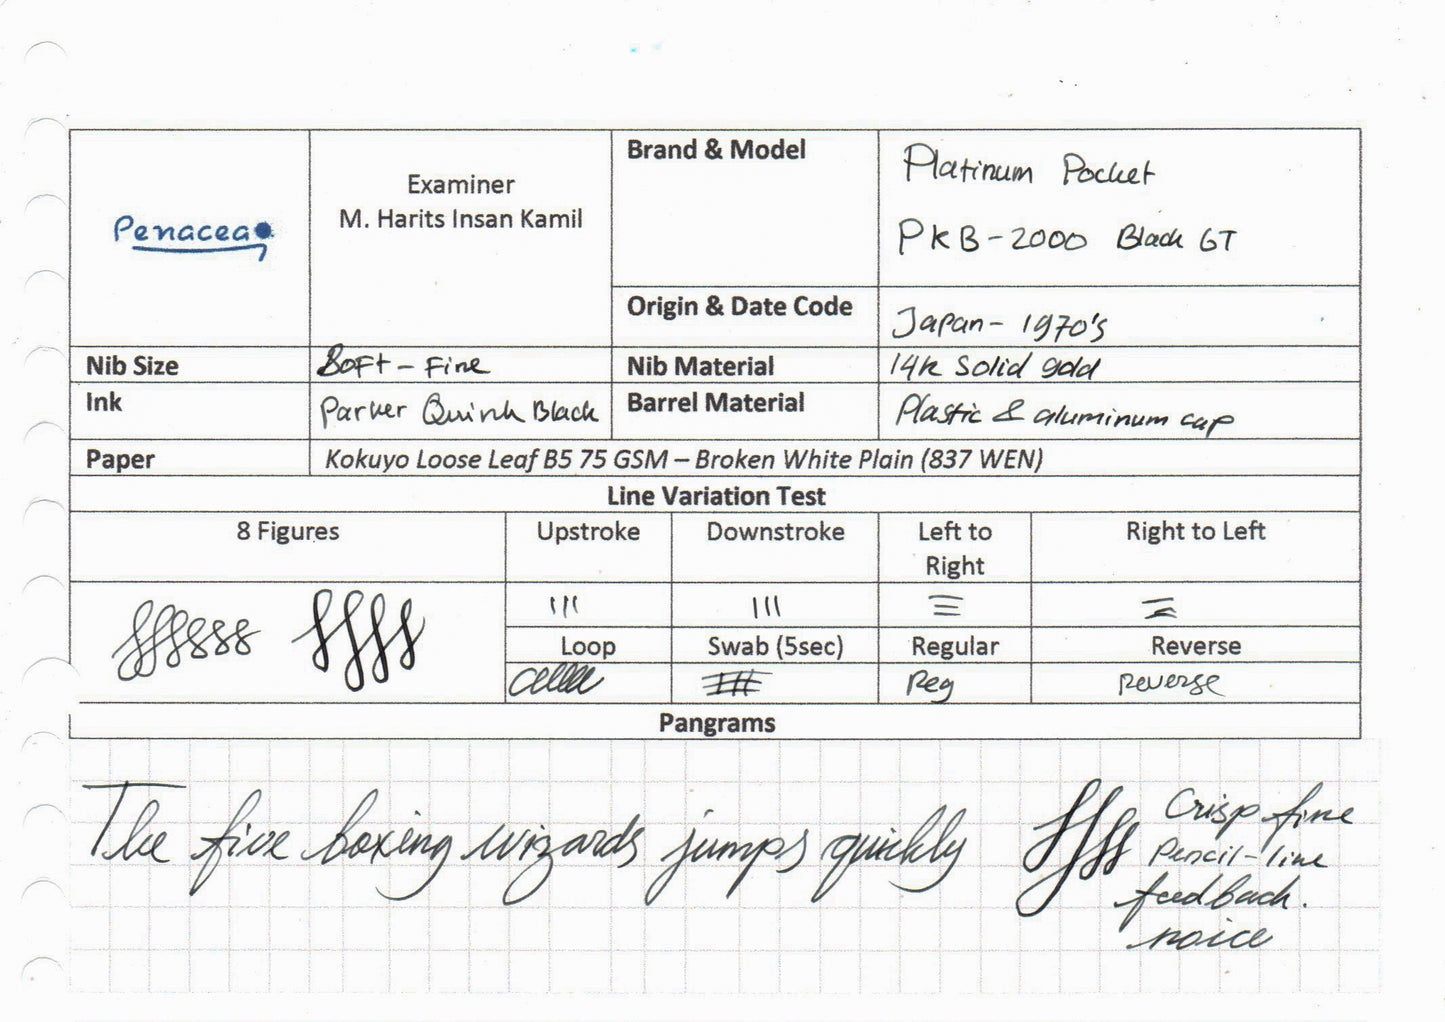 Penacea
Examiner
M. Harits Insan Kamil
Brand & Model
Platinum Pocket
PKB-2000 Black GT
Origin & Date Code
Japan - 1970's
Nib Size
Soft - Fine
Nib Material
14k Solid gold
Ink
Parker Quink Black
Barrel Material
Plastic & aluminum cap
Paper
Kokuyo Loose Leaf B5 75 GSM – Broken White Plain (837 WEN)
Line Variation Test
8 Figures
Upstroke
Downstroke
Left to
Right
Right to Left
Loop
Swab (5sec)
Regular
Reverse
Reg
Reverse
Pangrams
The five boxing wizards jumps quickly
Crisp fine
Pencil-line
feedback.
noice